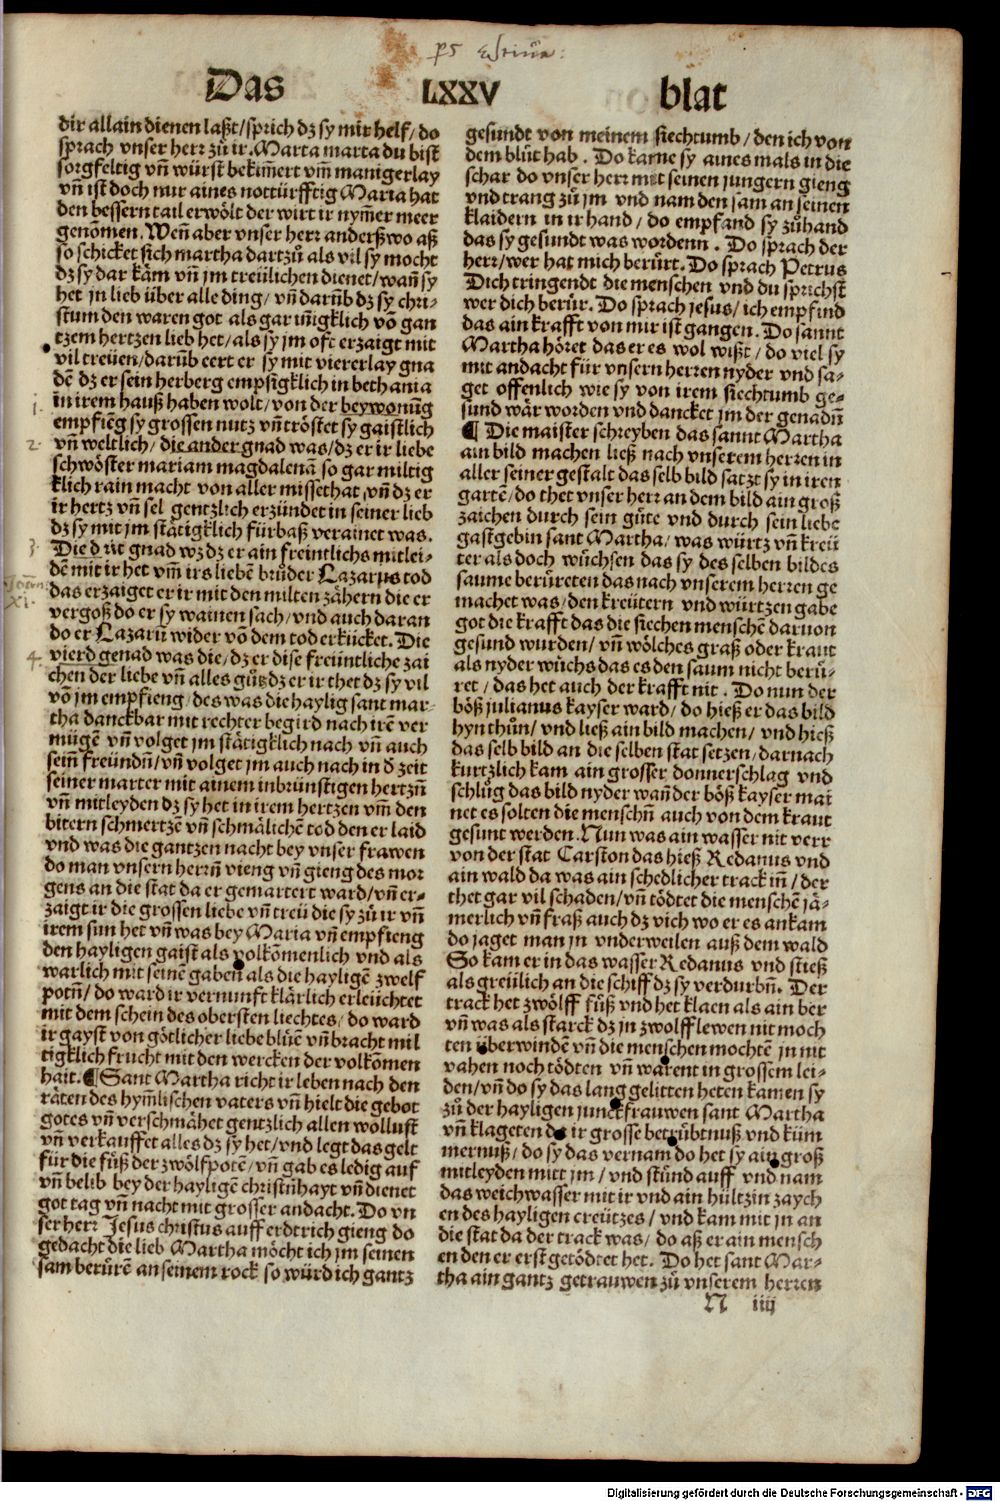 Das LXXV blat
dir allain dienen laßt/sprich dz sy mir helf/do
sprach vnser herr zů ir. Marta marta du bist
sorgfeltig vñ würst bekim̃ert vm̃ manigerlay
vñ ist doch nur aines notturfftig Maria hat
den bessern tail erwölt der wirt ir nym̃er meer
genom̃en. Weñ aber vnser herr anderßwo aß
so schicket sich martha dartzů als vil sy mocht
dz sy dar käm vñ jm treülichen dienet/wañ sy
het jn lieb über alle ding/vñ darũb dz sy chri-
stum den waren got als gar iñigklich võ gan
tzem hertzen lieb het/als sy jm oft erzaigt mit
vil treüen/darũb eert er sy mit viererlay gna
dẽ dz er sein herberg empsigklich in bethania
1. in irem hauß haben wolt/von der beywonũg
empfieg̃ sy grossen nutz vñ tröstet sy gaistlich
2. vñ weltlich/die ander gnad was/dz er ir liebe
schwöster mariam magdalenã so gar miltig
klich rain macht von aller missethat/vñ dz er
ir hertz vñ sel gentzlich erzündet in seiner lieb
dz sy mit jm stätigklich fürbaß verainet was.
3. Die drit gnad wz dz er ain freintlichs mitlei-
dẽ mit ir het vm̃ irs liebẽ brůder Lazarus tod
Joan: das erzaiget er ir mit den milten zähern die er
XI. vergoß do er sy wainen sach/vnd auch daran
do er Lazarũ wider võ dem tod erkücket. Die
4. vierd genad was die/dz er dise freüntliche zai
chen der liebe vñ alles gůtz dz er ir thet dz sy vil
võ jm empfieng/des was die haylig sant mar-
tha danckbar mit rechter begird nach irẽ ver
mügẽ vñ volget jm stätigklich nach vñ auch
sein̄ freündñ/vñ volget jm auch nach in d̕ zeit
seiner marter mit ainem inbrünstigen hertzñ
vñ mitleyden dz sy het in irem hertzen vm̃ den
bitern schmertzẽ vñ schmälichẽ tod den er laid
vnd was die gantzen nacht bey vnser frawen
do man vnsern herrñ vieng vñ gieng des mor
gens an die stat da er gemartert ward/vñ er-
zaigt ir die grossen liebe vñ treü die sy zů ir vñ
irem sun het vñ was bey Maria vñ empfieng
den hayligen gaist als volkõmenlich vnd als
warlich mit seinẽ gaben als die hayligẽ zwelf
potñ/do ward ir vernunft klärlich erleüchtet
mit dem schein des obersten liechtes/do ward
ir gayst von götlicher liebe blüẽ vñ bracht mil
tigklich frucht mit den wercken der volkõmen
hait. ¶ Sant Martha richt ir leben nach den
räten des hym̃lischen vaters vñ hielt die gebot
gotes vñ verschmähet gentzlich allen wollust
vñ verkauffet alles dz sy het/vnd legt das gelt
für die füß der zwölfpotẽ/vñ gab es ledig auf
vñ belib bey der hayligẽ christñhayt vñ dienet
got tag vñ nacht mit grosser andacht. Do vn
ser herr Jesus christus auff erdtrich gieng do
gedacht die lieb Martha möcht ich jm seinen
sam berürẽ an seinem rock so würd ich gantz
gesundt von meinem siechtumb/den ich von
dem blůt hab. Do kame sy aines mals in die
schar do vnser herr mit seinen jungern gieng
vnd trang zů jm vnd nam den sam an seinen
klaidern in ir hand/do empfand sy zůhand
das sy gesundt was wordenn. Do sprach der
herr/wer hat mich berürt. Do sprach Petrus
Dich tringendt die menschen vnd du sprichst
wer dich berür. Do sprach jesus/ich empfind
das ain krafft von mir ist gangen. Do sannt
Martha höret das er es wol wißt/do viel sy
mit andacht für vnsern herren nyder vnd sa-
get offenlich wie sy von irem siechtumb ge-
sund wär worden vnd dancket jm der genadñ
¶ Die maister schreyben das sannt Martha
ain bild machen ließ nach vnserem herren in
aller seiner gestalt das selb bild satzt sy in iren
gartẽ/do thet vnser herr an dem bild ain groß
zaichen durch sein güte vnd durch sein liebe
gastgebin sant Martha/was würtz vñ kreü
ter als doch wůchsen das sy des selben bildes
saume berüreten das nach vnserem herren ge
machet was/den kreütern vnd würtzen gabe
got die krafft das die siechen menschẽ daruon
gesund wurden/vñ wölches graß oder kraut
als nyder wůchs das es den saum nicht berü-
ret/das het auch der krafft nit. Do nun der
böß julianus kayser ward/do hieß er das bild
hyn thůn/vnd ließ ain bild machen/vnd hieß
das selb bild an die selben stat setzen/darnach
kurtzlich kam ain grosser donnerschlag vnd
schlůg das bild nyder wañ der böß kayser mai
net es solten die menschñ auch von dem kraut
gesunt werden. Nun was ain wasser nit verr
von der stat Carston das hieß Redanus vnd
ain wald da was ain schedlicher track iñ/der
thet gar vil schaden/vñ tödtet die menschẽ jä-
merlich vñ fraß auch dz vich wo er es ankam
do jaget man jn vnderweilen auß dem wald
So kam er in das wasser Redanus vnd stieß
als greülich an die schiff dz sy verdurbñ. Der
track het zwölff füß vnd het klaen als ain ber
vñ was als starck dz jn zwolff lewen nit moch
ten überwindẽ vñ die menschen mochtẽ jn nit
vahen noch tödten vñ warent in grossem lei-
den/vñ do sy das lang gelitten heten kamen sy
zů der hayligen junckfrauwen sant Martha
vñ klageten dz ir grosse betrübtnuß vnd küm
mernuß/do sy das vernam do het sy ain groß
mitleyden mitt jm/vnd stůnd auff vnd nam
das weichwasser mit ir vnd ain hültzin zaych
en des hayligen creützes/vnd kam mit jn an
die stat da der track was/do aß er ain mensch
en den er erst getödtet het. Do het sant Mar-
tha ain gantz getrauwen zů vnserem herren
N iiij
Digitalisierung gefördert durch die Deutsche Forschungsgemeinschaft - DFG